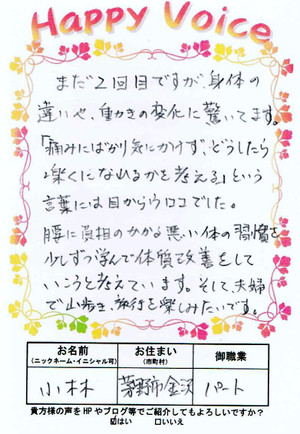 Happy Voice
まだ2回目ですが、身体の
違いや、動きの変化に驚いてます。
「痛みにばかり気にかけず、どうしたら
楽くになれるかを考える」という
言葉には目からウロコでした。
腰に負担のかかる悪い体の習慣を
少しずつ学んで体質改善をして
いこうと考えています。そして、夫婦
で山歩き、旅行を楽しみたいです。
お名前 お住まい 御職業
(ニックネーム・イニシャル可) (市町村)
小林 茅野市金沢 パート
貴方様の声をHPやブログ等でご紹介してもよろしいですか?
☑はい □いいえ